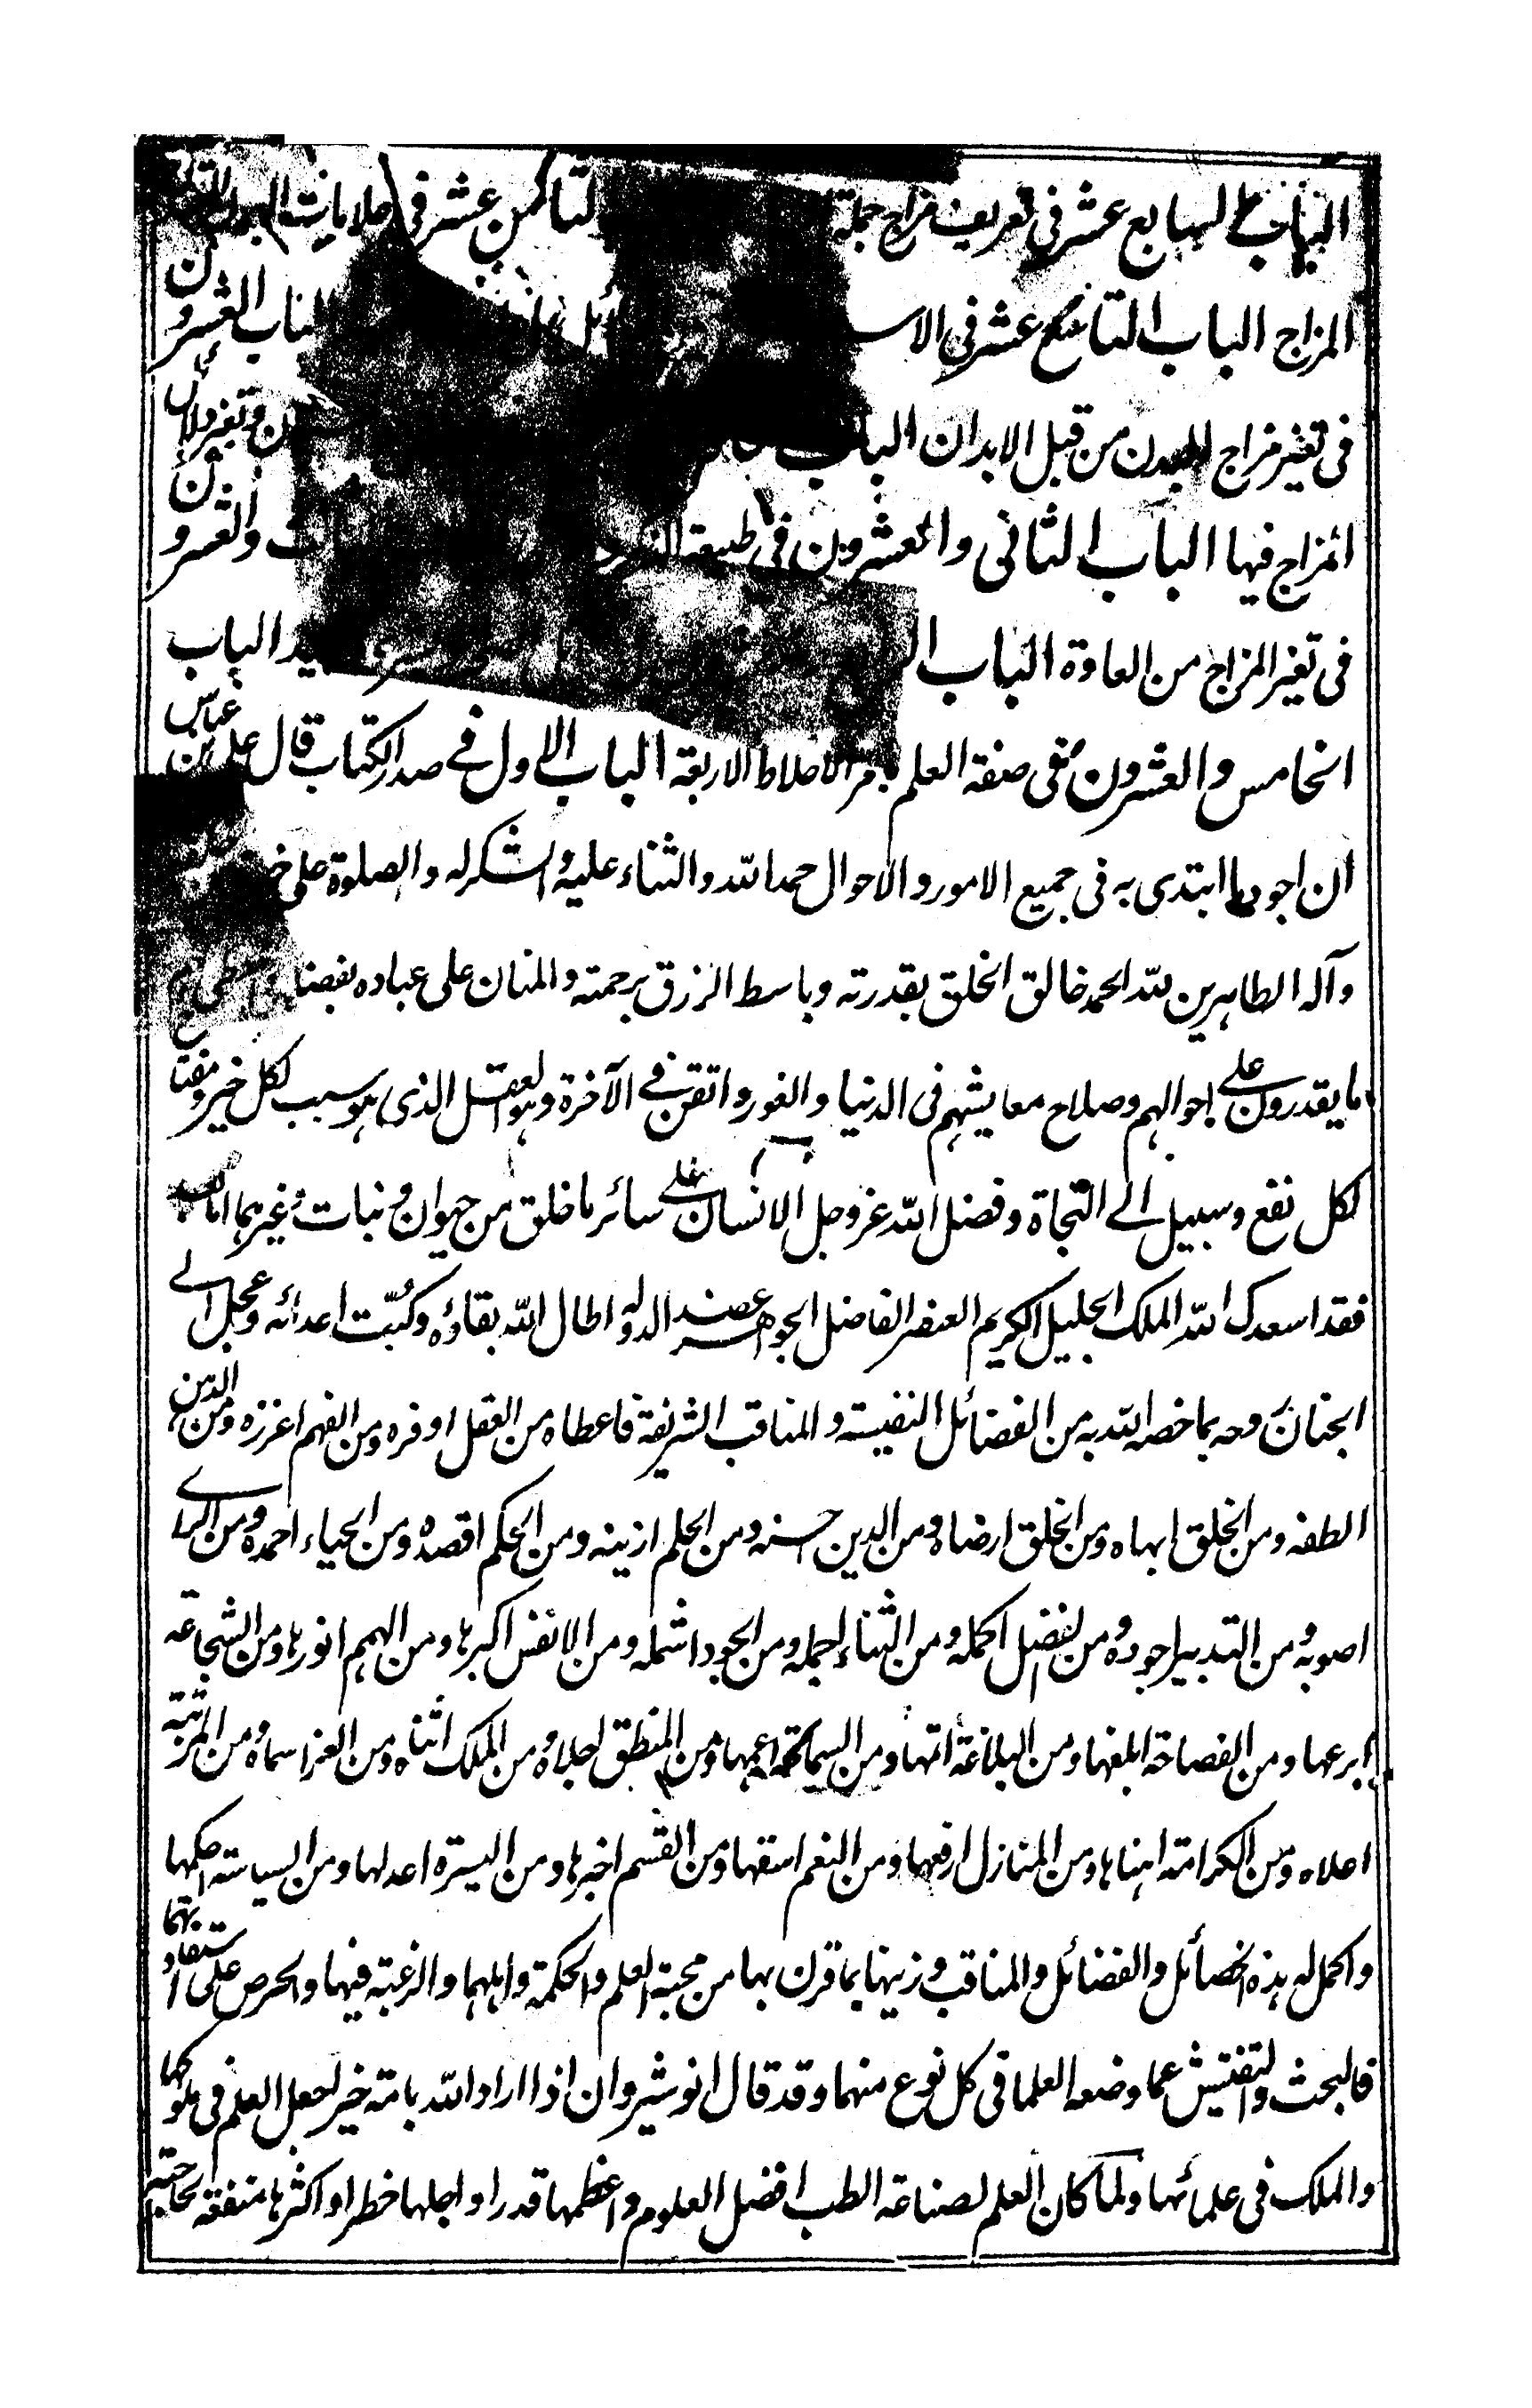 الباب السابع عشر في تعريف مزاج جملة الثامن عشر في علامات البدن
المزاج الباب التاسع عشر في الاسـ الباب العشرون
في تغير مزاج البدن من قبل الابدان الباب
المزاج فيها الباب الثاني والعشرون في طبيعة والعشرون
في تغير المزاج من العادة الباب الباب
الخامس والعشرون في صفة العلم بامر الاخلاط الاربعة الباب الاول في صدر الكتاب قال علي بن عباس
ان اجود ما ابتدى به في جميع الامور والاحوال حمدا لله والثناء عليه والشكر له والصلوة على
وآله الطاهرين لله الحمد خالق الخلق بقدرته وباسط الرزق برحمته والمنان على عباده بفضله
ما يقدرون على احوالهم وصلاح معايشهم في الدنيا والفوز واتقن في الآخرة وهو العقل الذى هو سبب لكل خير ومفتاح
لكل نفع وسبيل الى النجاة وفضل الله عز وجل الانسان على سائر ما خلق من حيوان ونبات وغيرهما اما بعد
فقد اسعدك الله الملك الجليل الكريم العنصر الفاضل الجوهر عضد الدولة اطال الله بقاؤه وكبت اعدائه وعجل الى
الجنان روحه بما خصه الله به من الفضائل النفيسة والمناقب الشريفة فاعطاه من العقل اوفره ومن الفهم اغرزه ومن الذهن
الطفه ومن الخلق ابهاه ومن الخلق ارضاه ومن الدين حسنه ومن الحلم ازينه ومن الحكم اقصده ومن الحياء احمده ومن الراى
اصوبه ومن التدبير اجوده ومن الفضل اكمله ومن الثناء اجمله ومن الجود اشمله ومن الانفس اكبرها ومن الهمم انورها ومن الشجاعة
ابرعها ومن الفصاحة ابلغها ومن البلاغة اتمها ومن السماحة اعمها ومن المنطق اجلاه ومن الملك اثناه ومن العز اسماه ومن المرتبة
اعلاه ومن الكرامة اهناها ومن المنازل ارفعها ومن النعم اسقها ومن القسم اخيرها ومن السيرة اعدلها ومن السياسة احكمها
واكمل له هذه الخصائل والفضائل والمناقب وزينها بما قرن بها من محبة العلم والحكمة واهلهما والرغبة فيها والحرص على استفادتهما
فالبحث والتفتيش عما وضعه العلما في كل نوع منهما وقد قال انوشيروان اذا اراد الله بامة خير لجعل العلم في ملوكها
والملك في علمائها ولما كان العلم لصناعة الطب افضل العلوم واعظمها قدرا واجلها خطرا واكثرها منفعة لحاجة